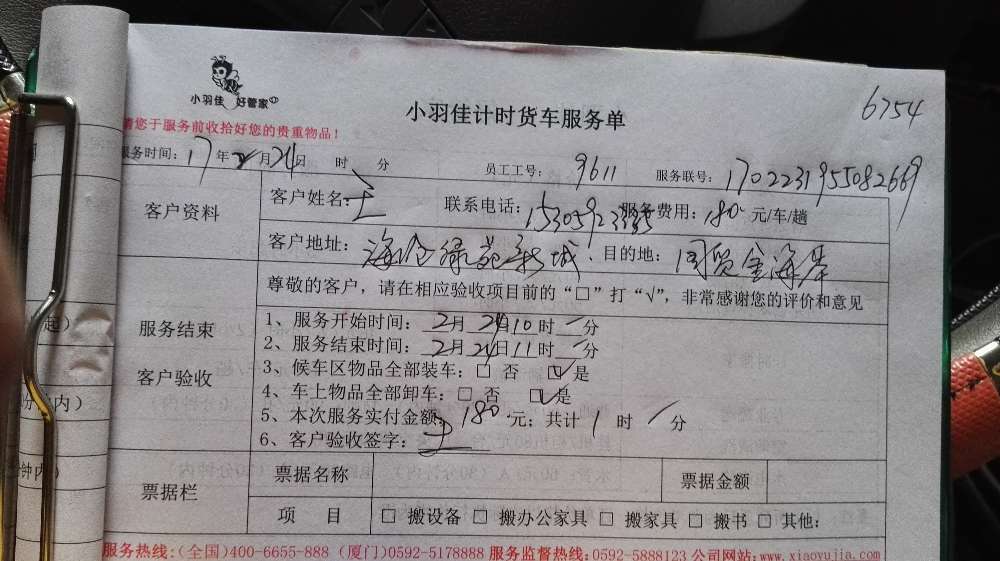 小羽佳 好管家
小羽佳计时货车服务单
6754
请您于服务前收拾好您的贵重物品！
服务时间：17年2月24日 时 分 员工工号：9611 服务联号：1702231955082669
客户资料
客户姓名：王 联系电话： 服务费用：180 元/车/趟
客户地址：海沧绿苑新城 目的地：国贸金海岸
服务结束
客户验收
尊敬的客户，请在相应验收项目前的“□”打“√”，非常感谢您的评价和意见
1、服务开始时间：2月24日10时/分
2、服务结束时间：2月24日11时/分
3、候车区物品全部装车：□ 否 ☑是
4、车上物品全部卸车：□ 否 ☑是
5、本次服务实付金额：180元；共计1时/分
6、客户验收签字：王
票据栏
票据名称 票据金额
项 目 □ 搬设备 □ 搬办公家具 □ 搬家具 □ 搬书 □ 其他：
服务热线：（全国）400-6655-888（厦门）0592-5178888 服务监督热线：0592-5888123 公司网站：www.xiaoyujia.com